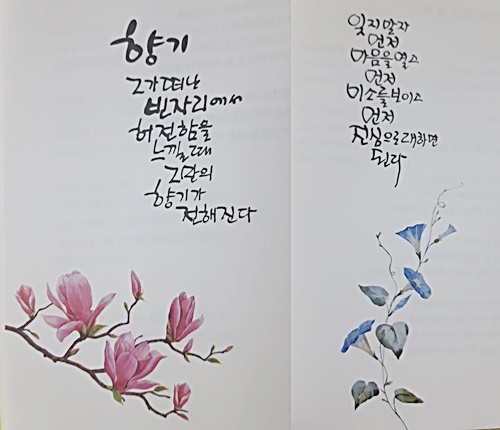 향기
그가 떠난
빈자리에서
허전함을
느낄 때
그만의
향기가
전해진다
잊지말자
먼저
마음을 열고
먼저
미소를 보이고
먼저
진심으로 대하면
된다